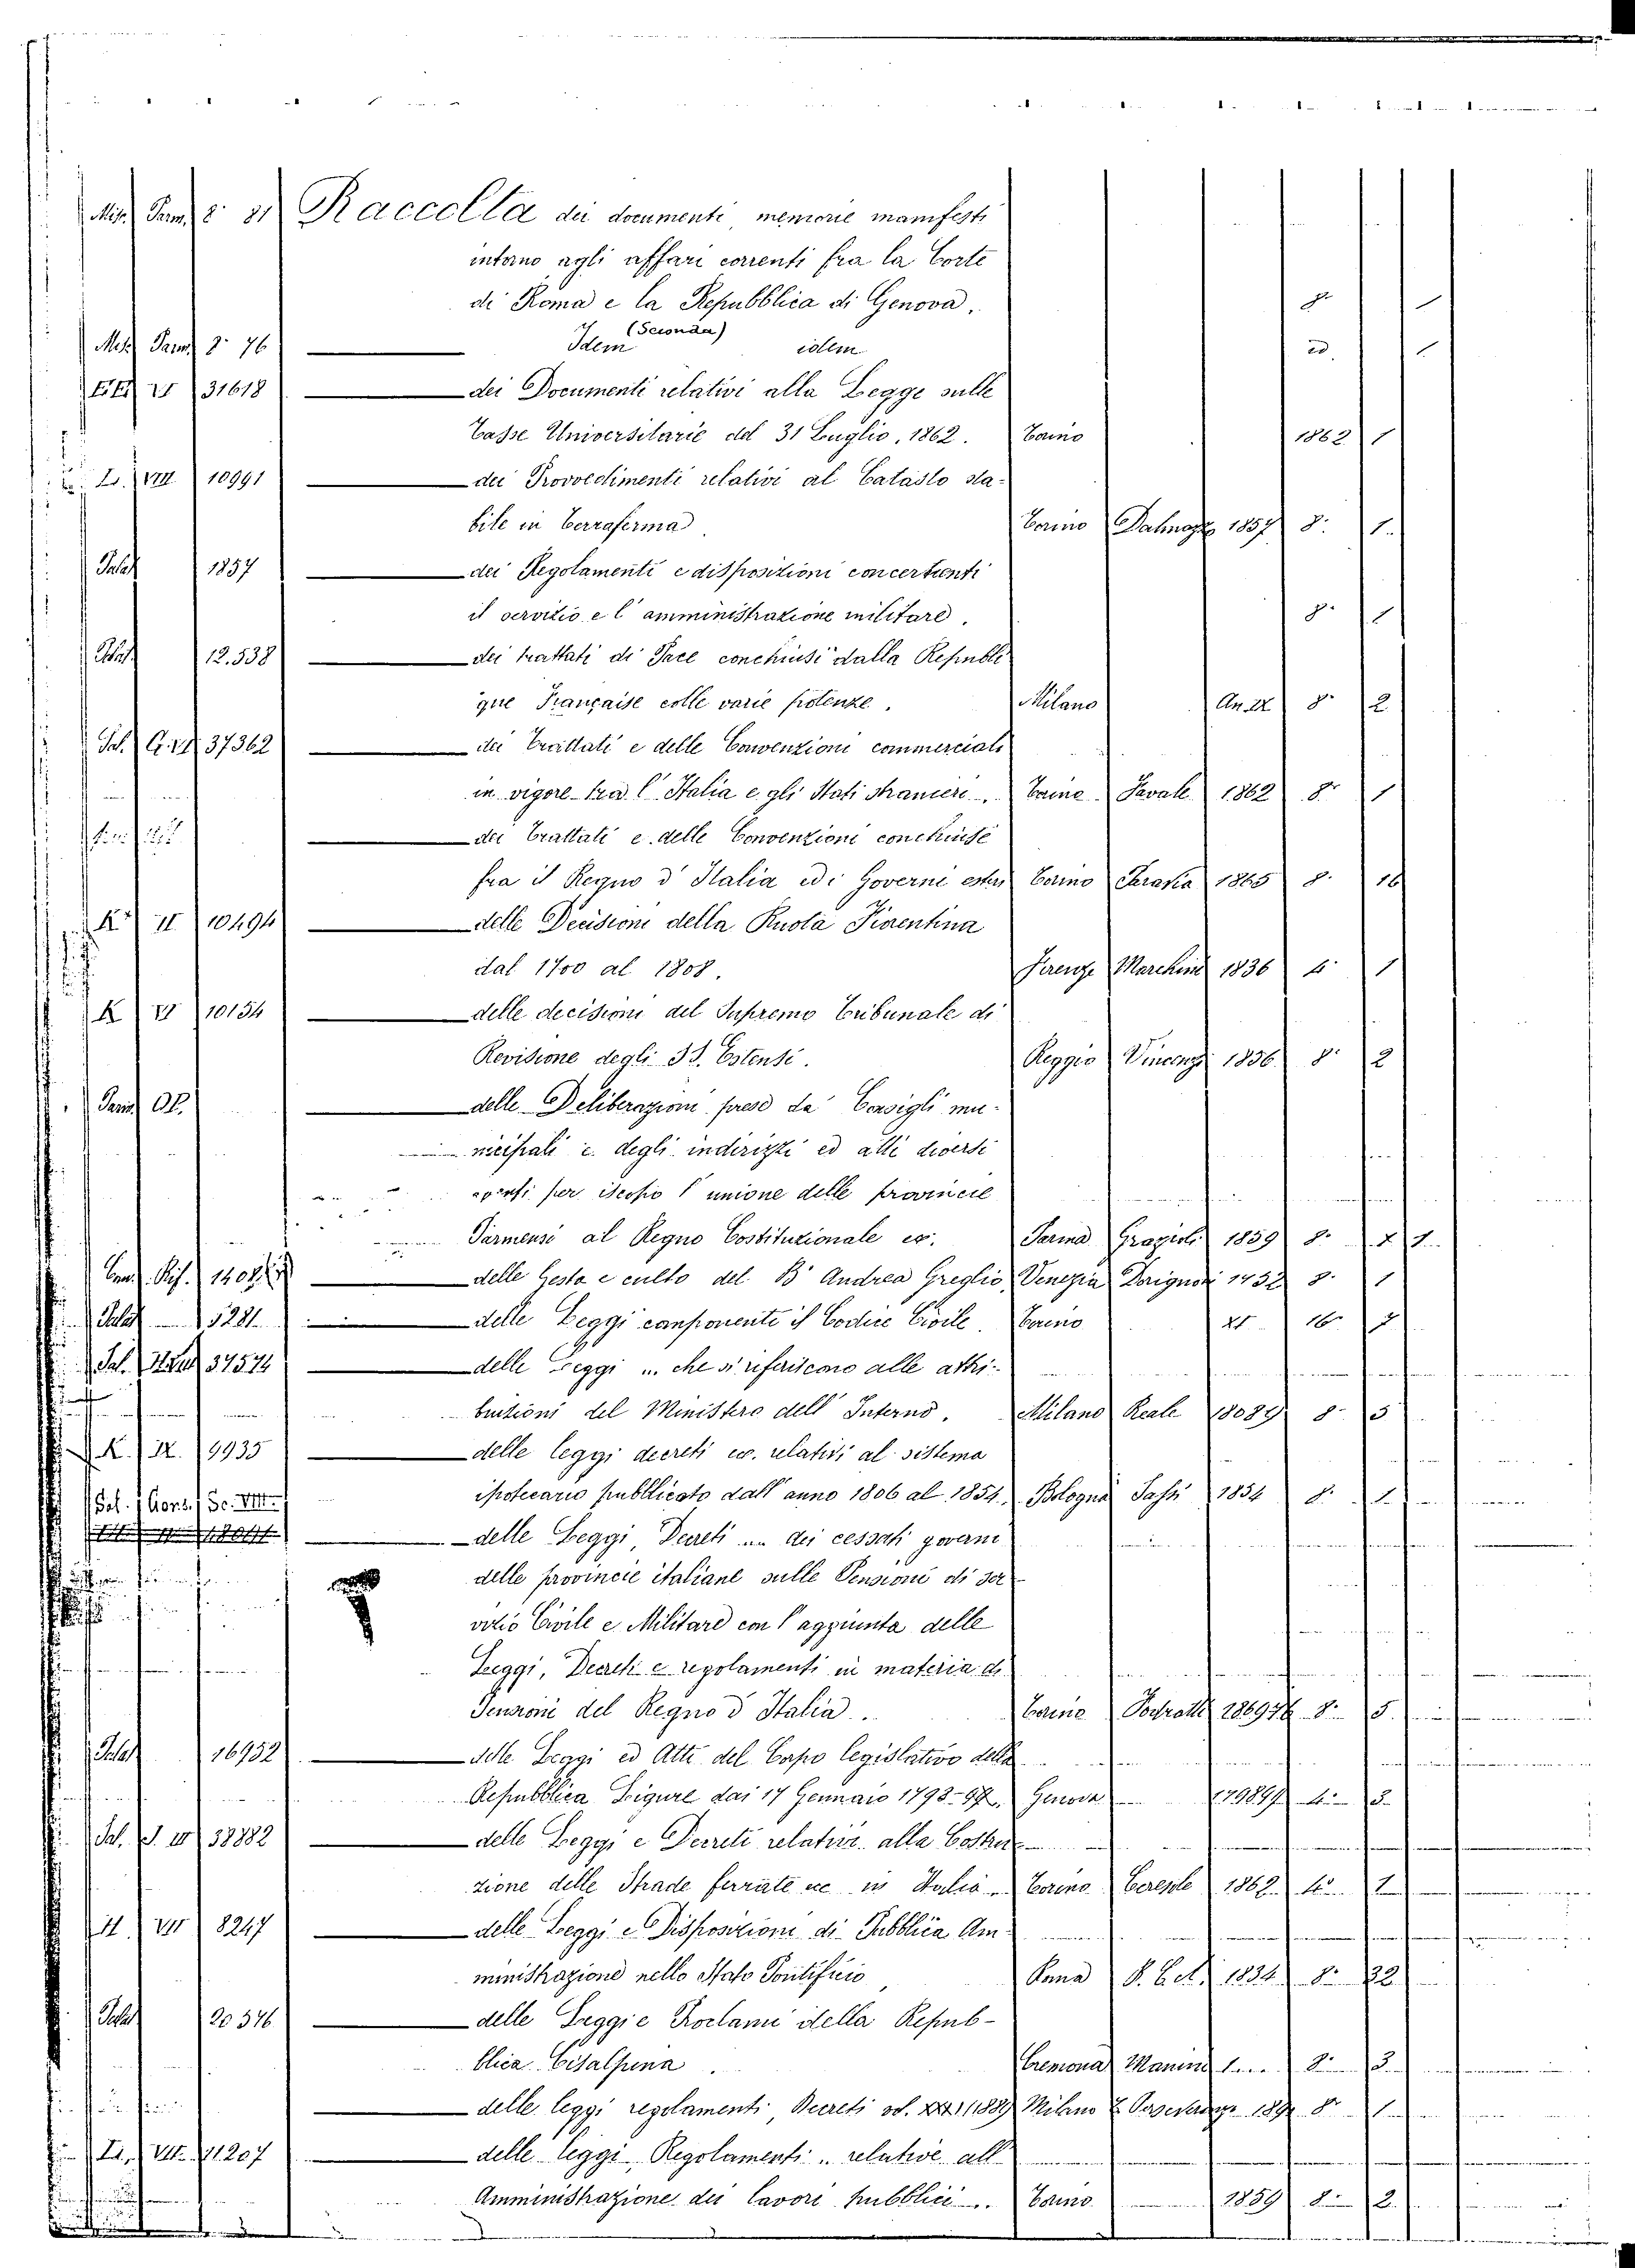 Misc. Parm. 8° 31 Raccolta dei documenti, memorie manifesti
intorno agli affari correnti fra la Corte
di Roma e la Repubblica di Genova. 8° 1
Misc. Parm. 8° 76 Idem (Seconda) idem id. 1
31618 dei Documenti relativi alla Legge sulle
Tasse Universitarie del 31 Luglio, 1862. Torino 1862 1
VIII 10991 dei Provvedimenti relativi al Catasto sta-
bile in Terraferma Torino Dalmazzo 1857 8° 1.
Palat 1857 dei Regolamenti e disposizioni concertanti
il servizio e l'amministrazione militare. 8° 1
Palat. 12.538 dei trattati di Pace conchiusi dalla Republi
que Française colle varie potenze. Milano An. IX 8° 2
Sal. 37362 dei Trattati e delle Convenzioni commerciali
in vigore tra l'Italia e gli Stati stranieri. Torino Favale 1862 8° 1
dei Trattati e delle Convenzioni conchiuse
fra il Regno d'Italia ed i Governi esteri Torino Paravia 1865 8° 16
K II 10494 delle Decisioni della Ruota Fiorentina
dal 1700 al 1808. Firenze Marchini 1836 4° 1
K VI 10154 delle decisioni del Supremo Tribunale di
Revisione degli SS. Estensi. Reggio Vincenzi 1836 8° 2
Parm. delle Deliberazioni prese da' Consigli mu-
nicipali e degli indirizzi ed atti diversi
aventi per iscopo l'unione delle provincie
Parmensi al Regno Costituzionale ec. Parma Grazioli 1859 8° 1.
delle Gesta e culto del B° Andrea Greglio Venezia 1732 8° 1
Palat 15281 delle Leggi componenti il Codice Civile Torino 16°
Sal. 37574 delle Leggi ... che si riferiscono alle attri-
buzioni del Ministero dell'Interno. Milano Reale 1808 9 8° 3
K. IX. 9935 delle leggi decreti ec. relativi al sistema
ipotecario pubblicato dall'anno 1806 al 1854. Bologna Sassi 1854 8° 1.
Sal. Cons. Sc. VIII delle Leggi, Decreti ... dei cessati governi
delle provincie italiane sulle Pensioni di ser
vizio Civile e Militare con l'aggiunta delle
Leggi, Decreti e regolamenti in materia di
Pensioni del Regno d'Italia. Torino 8° 5.
Palat 16952 delle Leggi ed Atti del Corpo legislativo della
Repubblica Ligure dai 17 Gennaio 1798-99. Genova 1798 99 4° 3.
Sal. 38882 delle Leggi e Decreti relativi alla Costru
zione delle Strade ferrate ec in Italia. Torino Ceresole 1862. 4° 1
H. VII 8247 delle Leggi e Disposizioni di Pubblica Am-
ministrazione nello Stato Pontificio Roma 1834 8°
Palat 20376 delle Leggi e Proclami della Repub-
blica Cisalpina. Cremona Manini 1... 8° 3
delle leggi regolamenti, Decreti vol. Milano E. Perseveranza 8° 1
VII. 11207 delle leggi, Regolamenti .. relative all
Amministrazione dei lavori pubblici .. Torino 1859 8° 2.